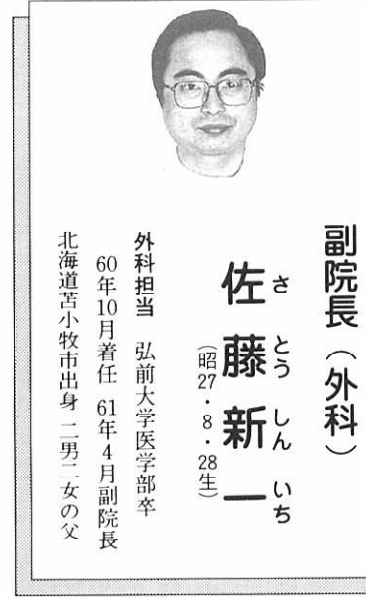 副院長（外科）
佐藤新一
さとうしんいち
（昭27・8・28生）
外科担当　弘前大学医学部卒
60年10月着任　61年4月副院長
北海道苫小牧市出身　二男二女の父